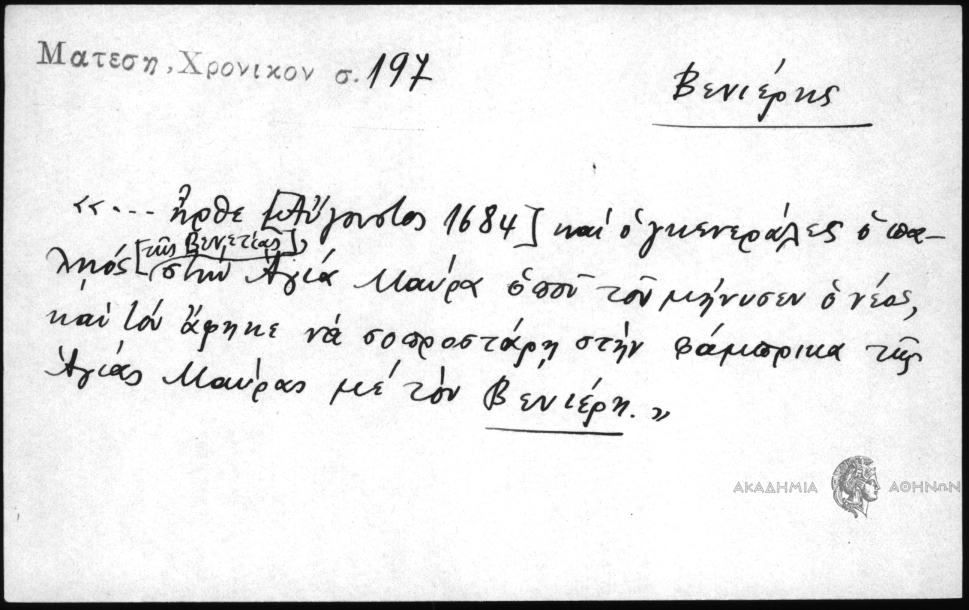 Ματεση, Χρονικον σ. 197
Βενιέρης
«... ἦρθε [Αὔγουστος 1684] καὶ ὁ γκενεράλες ὁ πα-
[τῆς Βενετίας],
ληός στὴν Ἁγία Μαύρα ὁποῦ τοῦ μήνυσεν ὁ νέος,
καὶ τὸν ἄφηκε νὰ σοπροστάρη στὴν φάμπρικα τῆς
Ἁγίας Μαύρας μὲ τὸν Βενιέρη.»
ΑΚΑΔΗΜΙΑ ΑΘΗΝΩΝ